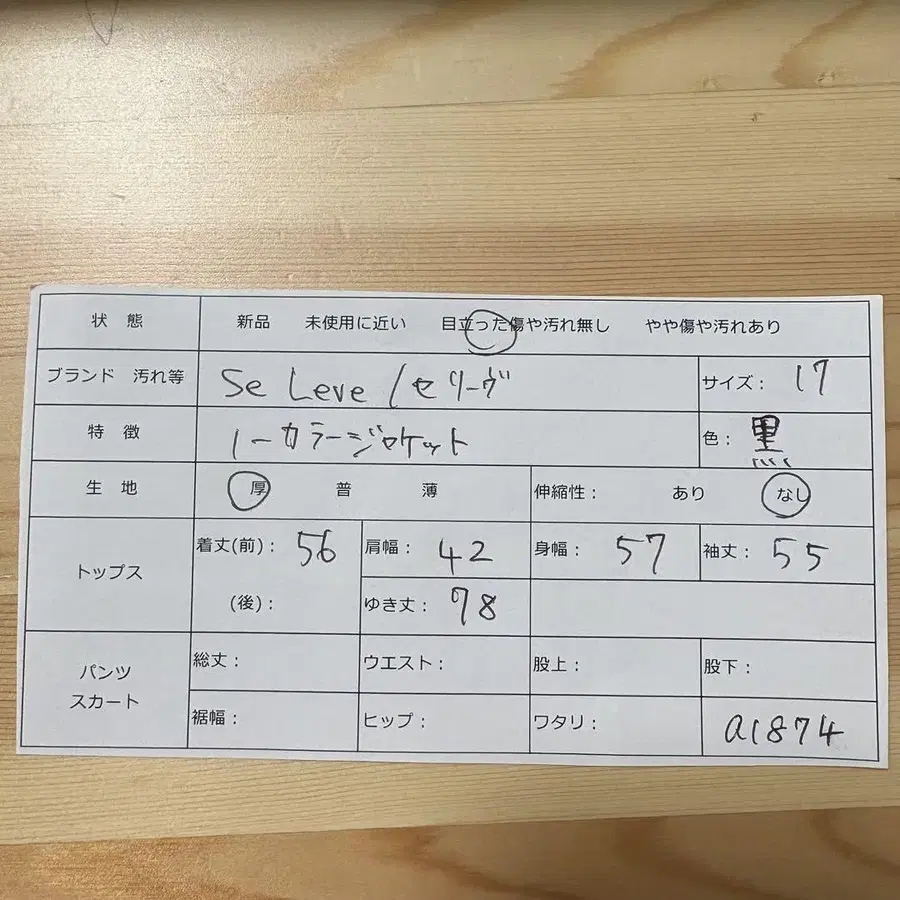 状 態 新品 未使用に近い 目立った傷や汚れ無し やや傷や汚れあり
ブランド 汚れ等 Se Leve /セリーヴ サイズ: 17
特 徴 ノーカラージャケット 色: 黒
生 地 厚 普 薄 伸縮性: あり なし
トップス 着丈(前): 56 肩幅: 42 身幅: 57 袖丈: 55
(後): ゆき丈: 78
パンツ スカート 総丈: ウエスト: 股上: 股下:
裾幅: ヒップ: ワタリ: a1874